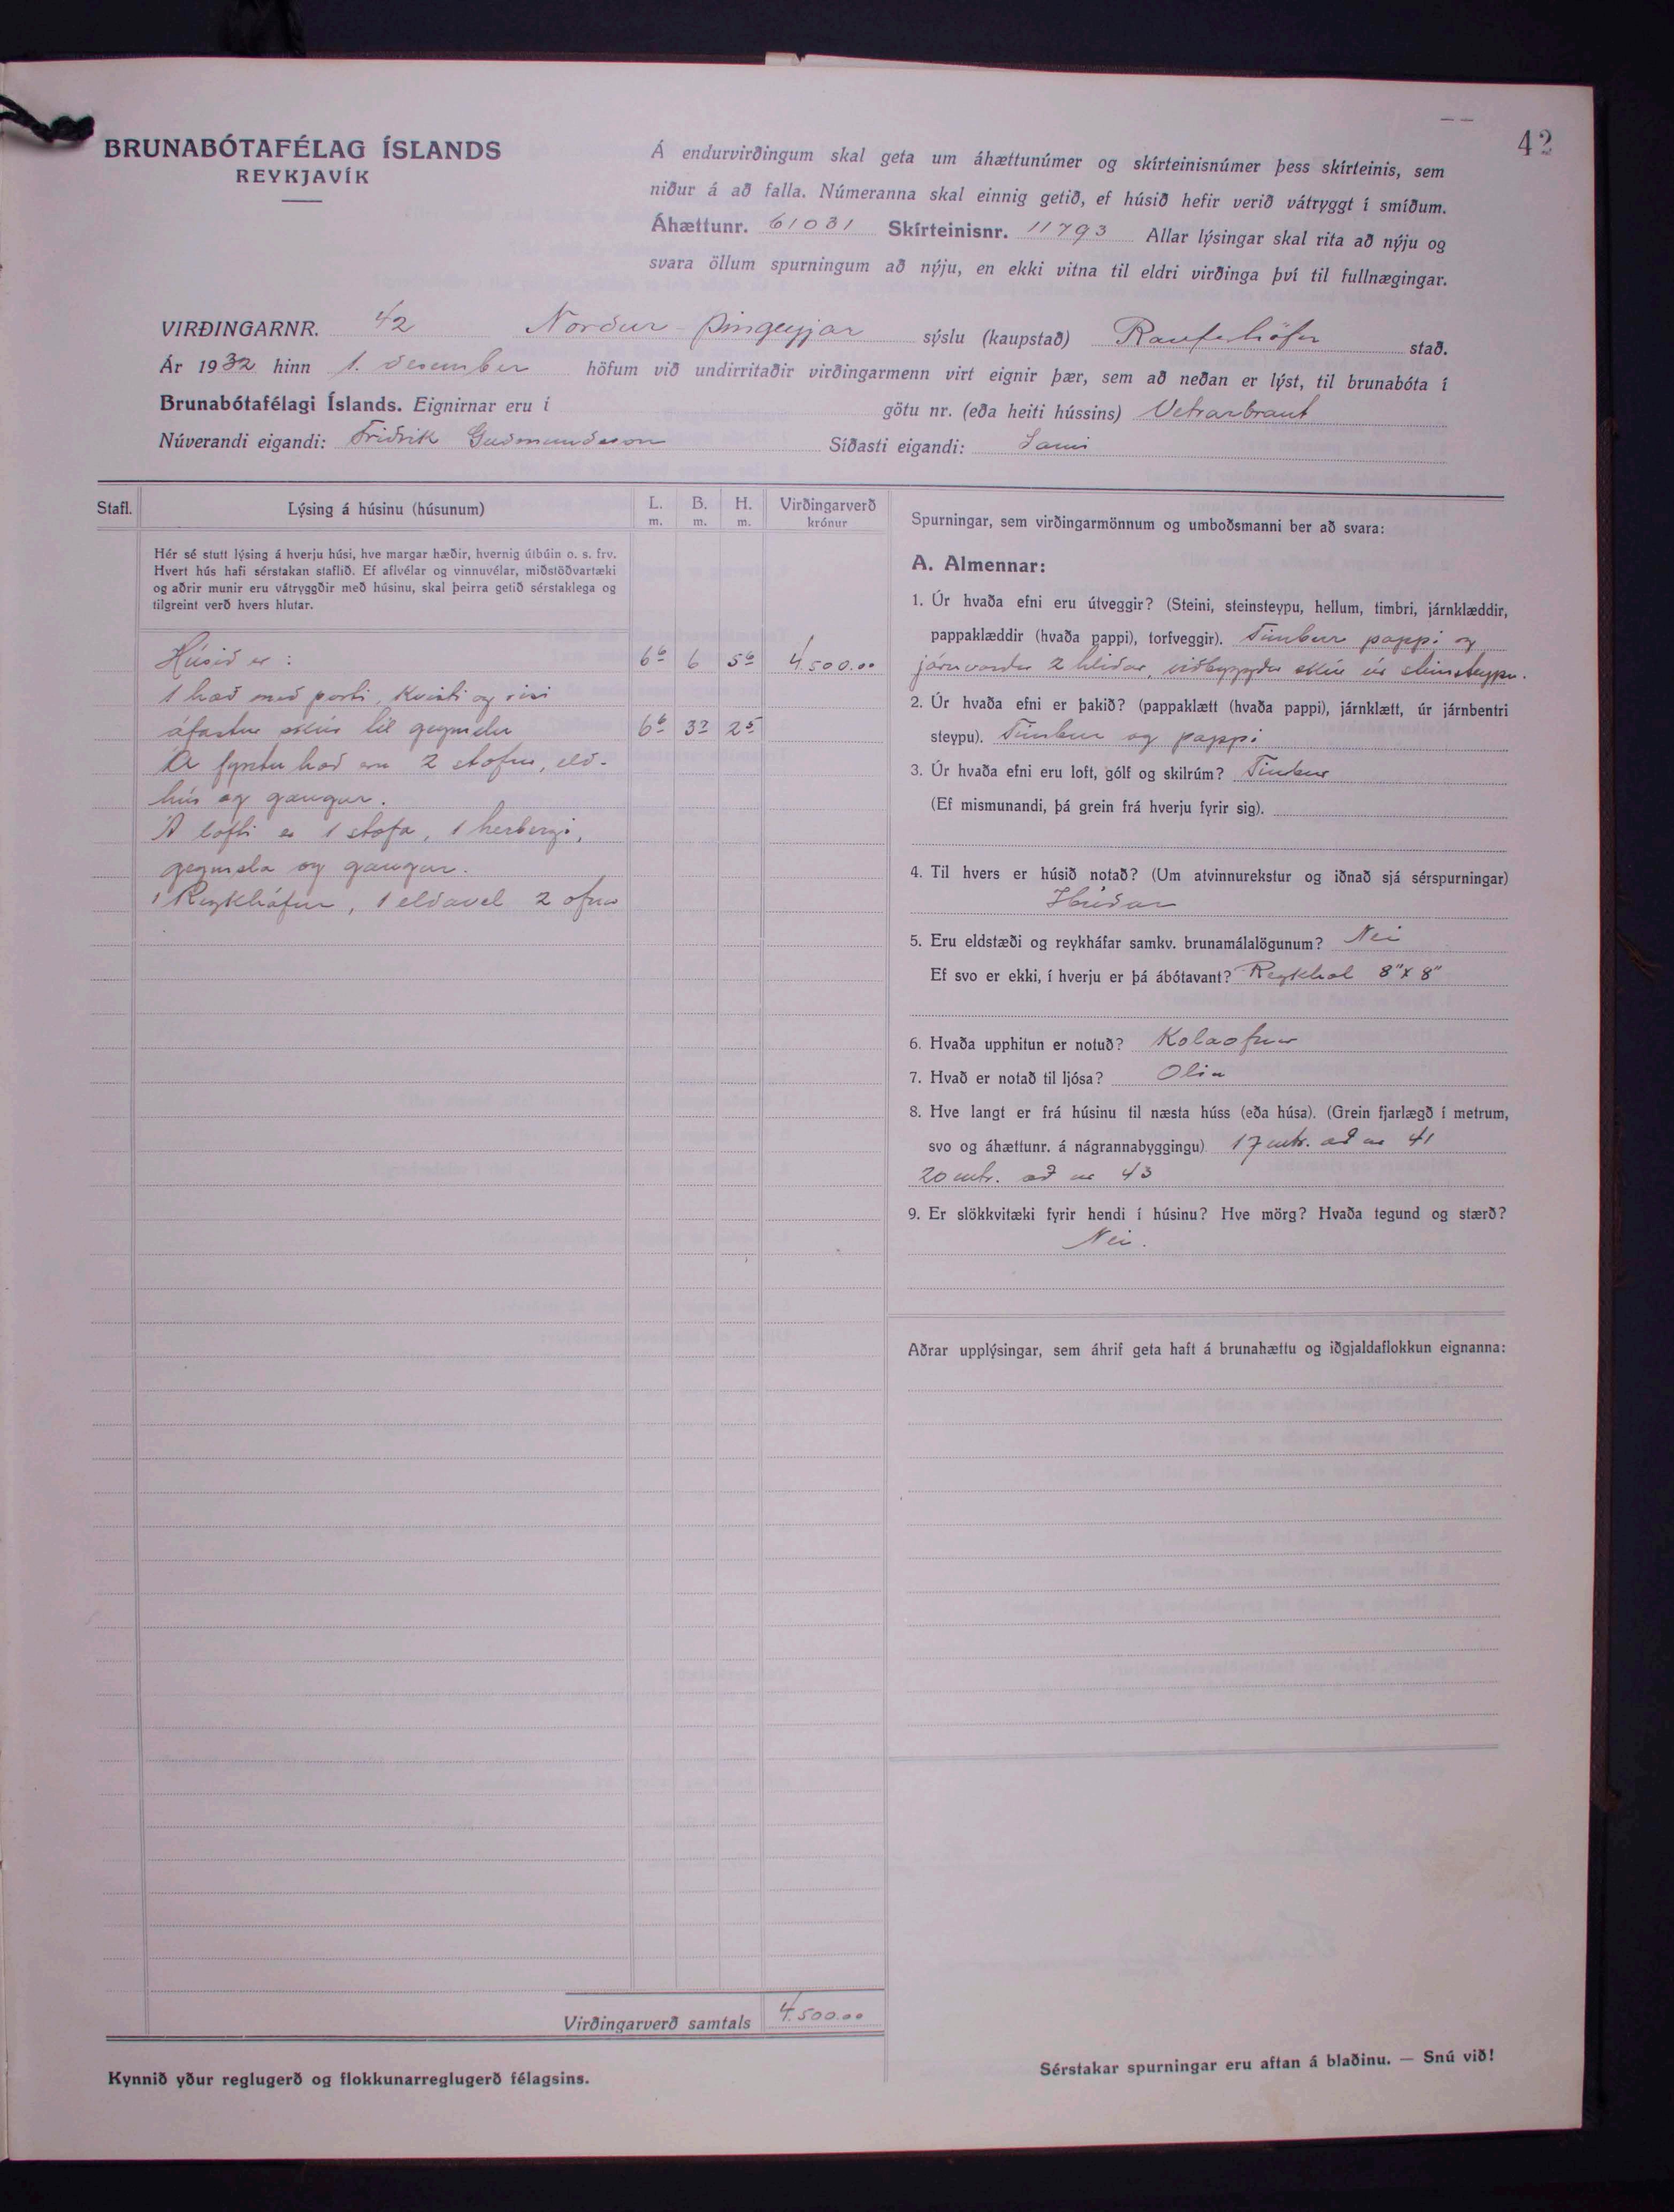 42
BRUNABÓTAFÉLAG ÍSLANDS
REYKJAVÍK
Á endurvirðingum skal geta um áhættunúmer og skírteinisnúmer þess skírteinis, sem
niður á að falla. Númeranna skal einnig getið, ef húsið hefir verið vátryggt í smíðum.
Áhættunr. 61031 Skírteinisnr. 11793 Allar lýsingar skal rita að nýju og
svara öllum spurningum að nýju, en ekki vitna til eldri virðinga því til fullnægingar.
VIRÐINGARNR. 42 Norður-Þingeyjar sýslu (kaupstað) Raufarhöfn stað.
Ár 1932 hinn 1. desember höfum við undirritaðir virðingarmenn virt eignir þær, sem að neðan er lýst, til brunabóta í
Brunabótafélagi Íslands. Eignirnar eru í götu nr. (eða heiti hússins) Vetrarbraut
Núverandi eigandi: Friðrik Guðmundsson Síðasti eigandi: Sami
Stafl. Lýsing á húsinu (húsunum) L. m. B. m. H. m. Virðingarverð krónur
Hér sé stutt lýsing á hverju húsi, hve margar hæðir, hvernig útbúin o. s. frv.
Hvert hús hafi sérstakan staflið. Ef aflvélar og vinnuvélar, miðstöðvartæki
og aðrir munir eru vátryggðir með húsinu, skal þeirra getið sérstaklega og
tilgreint verð hvers hlutar.
Húsið er: 6⁶ 6 5⁶ 4.500.00
1 hæð með porti, kvisti og risi
áfastur skúr til geymslu 6⁶ 3² 2⁵
Á fyrstu hæð eru 2 stofur, eld-
hús og gangur.
Á lofti er 1 stofa, 1 herbergi,
geymsla og gangur.
1 Reykháfur, 1 eldavel 2 ofnar
Virðingarverð samtals 4.500.00
Kynnið yður reglugerð og flokkunarreglugerð félagsins.
Spurningar, sem virðingarmönnum og umboðsmanni ber að svara:
A. Almennar:
1. Úr hvaða efni eru útveggir? (Steini, steinsteypu, hellum, timbri, járnklæddir,
pappaklæddir (hvaða pappi), torfveggir). Timbur pappi og
járnvarðar 2 hliðar, viðbyggður skúr úr steinsteypu.
2. Úr hvaða efni er þakið? (pappaklætt (hvaða pappi), járnklætt, úr járnbentri
steypu). Timbur og pappi
3. Úr hvaða efni eru loft, gólf og skilrúm? Timbur
(Ef mismunandi, þá grein frá hverju fyrir sig).
4. Til hvers er húsið notað? (Um atvinnurekstur og iðnað sjá sérspurningar)
Íbúðar
5. Eru eldstæði og reykháfar samkv. brunamálalögunum? Nei
Ef svo er ekki, í hverju er þá ábótavant? Reykhol 8"x8"
6. Hvaða upphitun er notuð? Kolaofnar
7. Hvað er notað til ljósa? Olia
8. Hve langt er frá húsinu til næsta húss (eða húsa). (Grein fjarlægð í metrum,
svo og áhættunr. á nágrannabyggingu) 17 mtr. að nr 41
20 mtr. að nr 43
9. Er slökkvitæki fyrir hendi í húsinu? Hve mörg? Hvaða tegund og stærð?
Nei.
Aðrar upplýsingar, sem áhrif geta haft á brunahættu og iðgjaldaflokkun eignanna:
Sérstakar spurningar eru aftan á blaðinu. — Snú við!